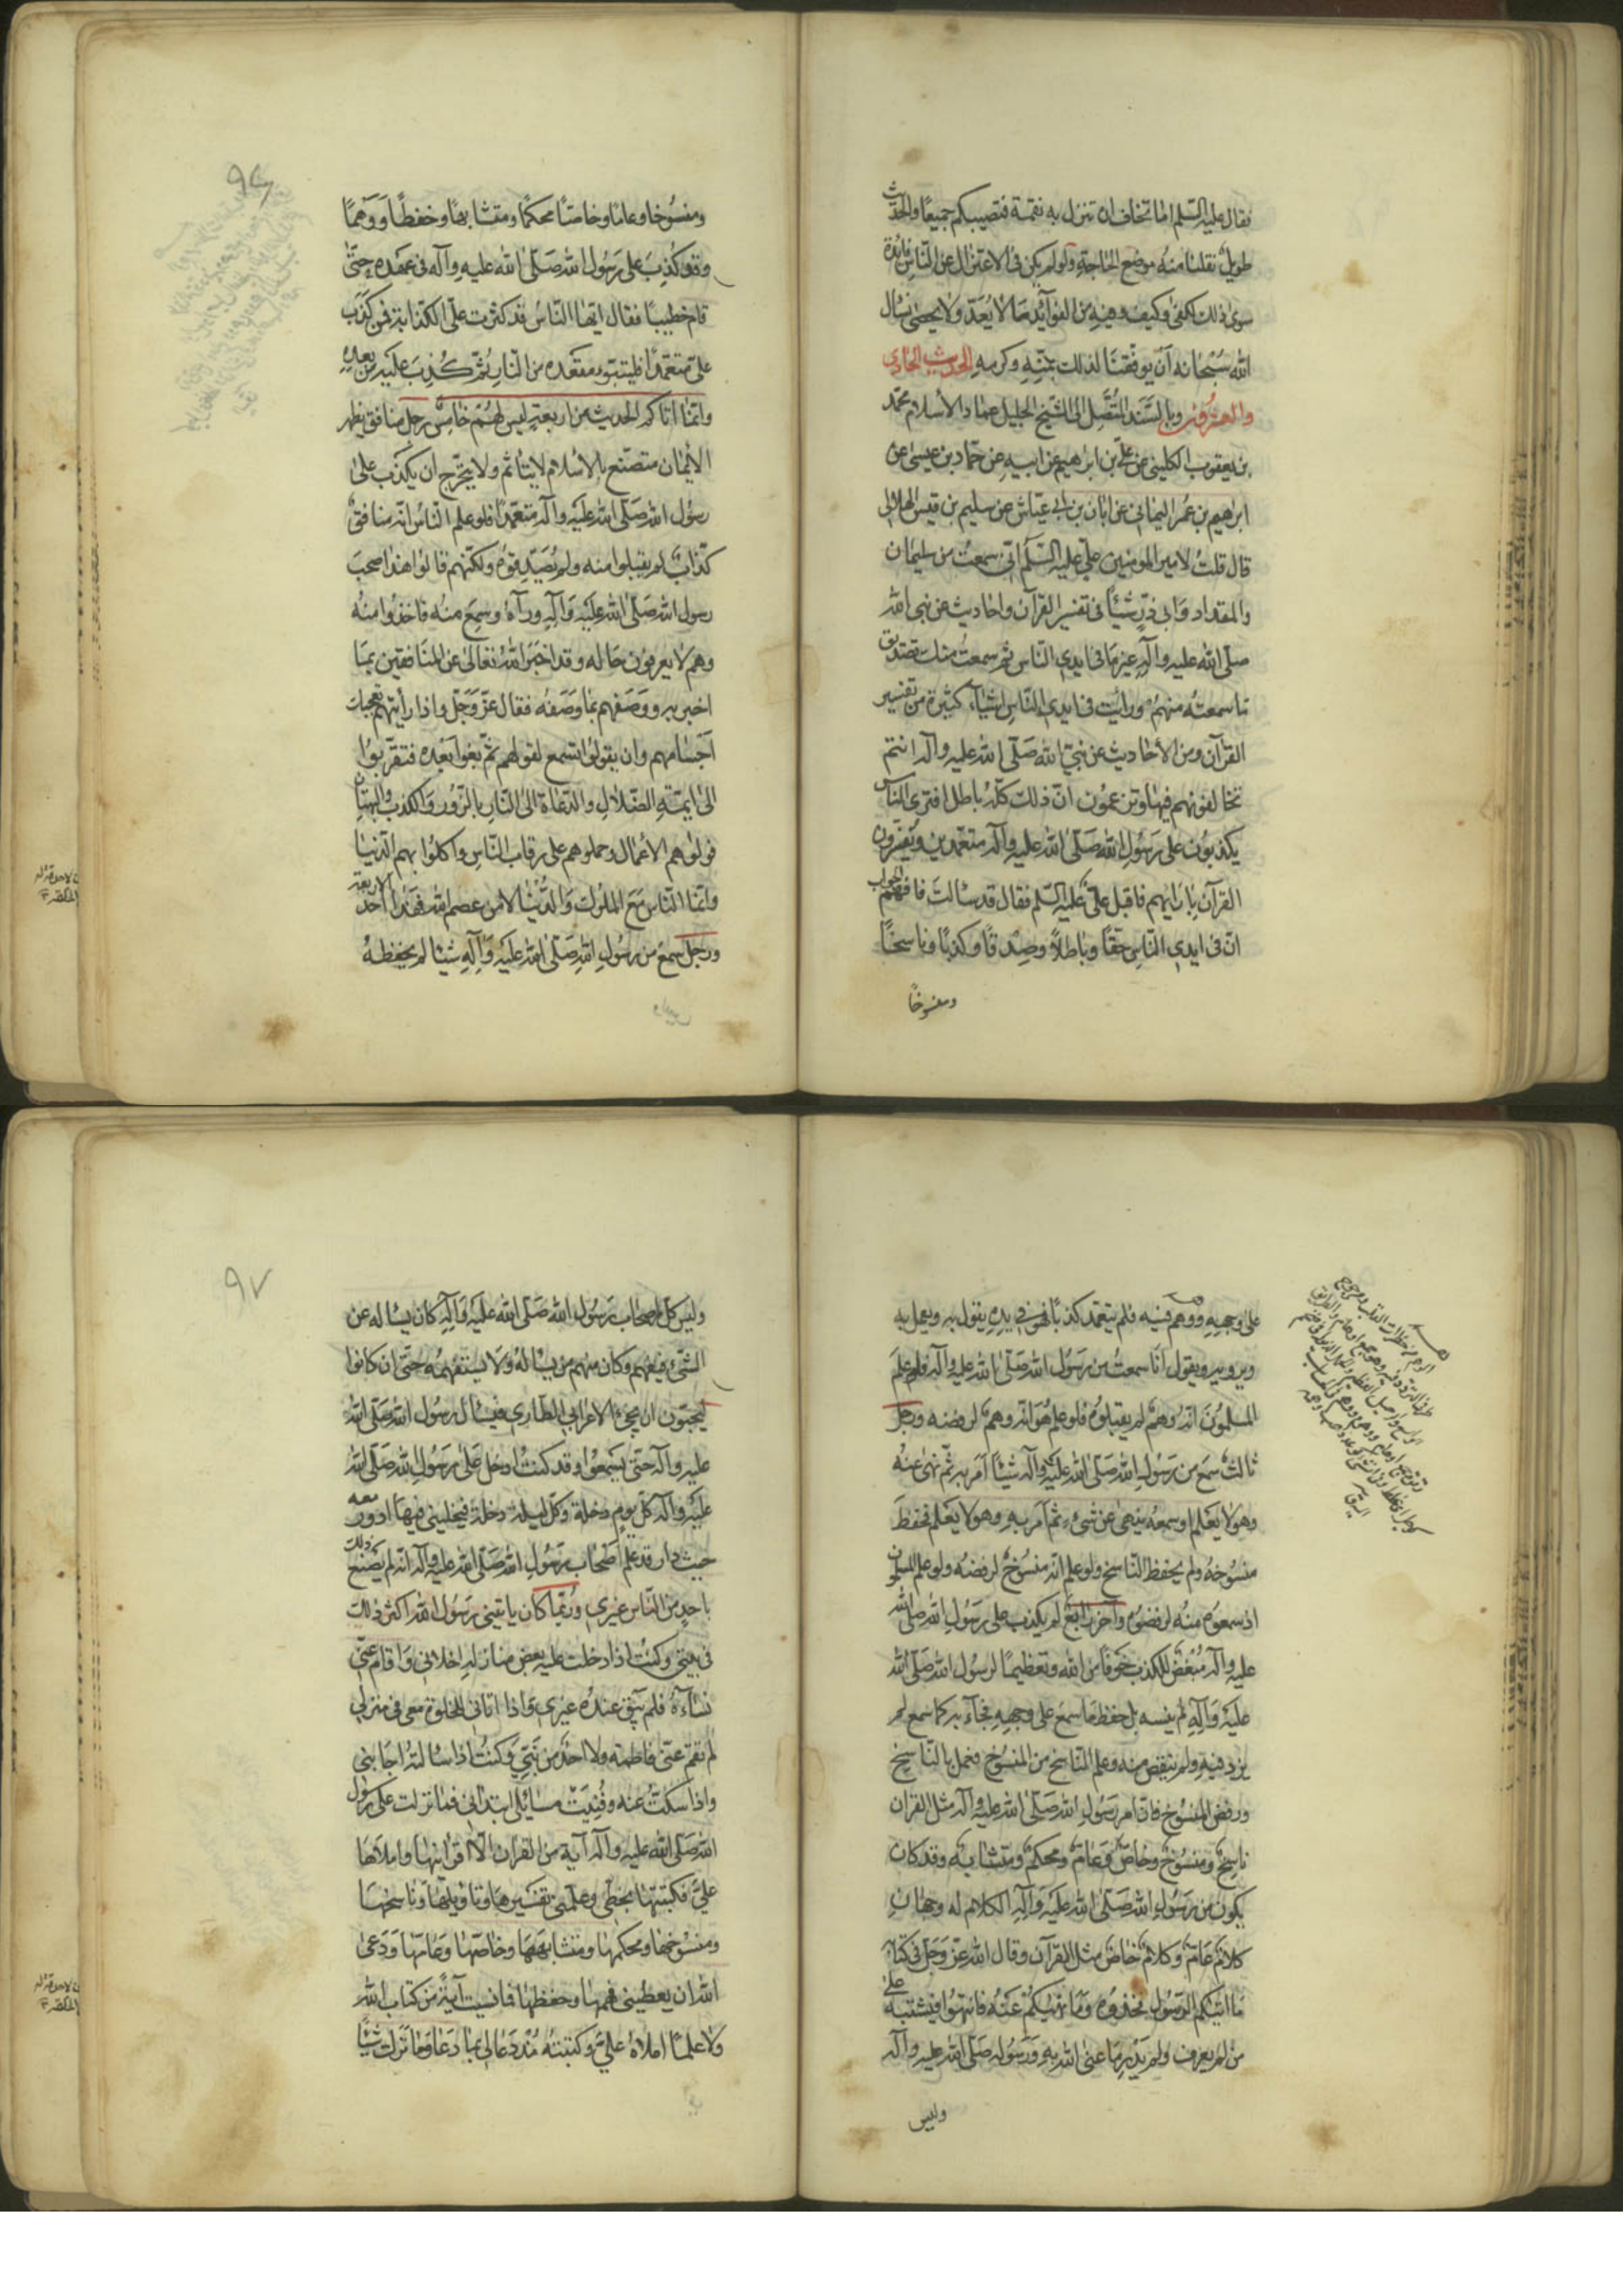 فقال عليه السّلم اما تخاف ان تنزل به نقمة فتصيبكم جميعًا والحديث
طويل نقلنا منه موضع الحاجة ولو لم يكن في الاعتزال عن الناس فائدة
سوى ذلك لكفى وكيف وفيه من الفوائد ما لا يُعَدّ ولا يحصى نسأل
الله سُبْحانه أن يوفّقنا لذلك بمنّه وكرمه الحديث الحادي
والعشرون وبالسّند المتّصل الى الشيخ الجليل عماد الاسلام محمّد
بن يعقوب الكليني عن علي بن ابراهيم عن ابيه عن حمّاد بن عيسى عن
ابراهيم بن عمر اليماني عن ابان بن ابي عيّاش عن سليم بن قيس الهلالي
قال قلتُ لامير المومنين علي عليه السّلم انّي سمعتُ من سليمان
والمقداد وابي ذرّ شيئًا في تفسير القرآن واحاديث عن نبي الله
صلّى الله عليه وآله غير ما في ايدي الناس ثم سمعتُ منك تصديق
ما سمعتُه منهم ورأيت في ايدي النّاس اشياء كثيرة من تفسير
القرآن ومن الأحاديث عن نبيّ الله صَلّى الله عليه وآله انتم
تخالفونهم فيها وتزعمون انّ ذلك كلّه باطل افترى الناس
يكذبون على رَسُولِ الله صَلّى الله عليه وآله متعمّدين ويُفسّرون
القرآن بارائهم فاقبل عليّ عليه السّلم فقال قد سالتَ فافهم الجواب
انّ في ايدي النّاسِ حَقًّا وباطلاً وصِدْقًا وكذبًا وناسخًا
ومنسوخًا
٩٦
ومنسُوخا وعامّا وخاصّا ومحكمًا ومتشابهًا وحفظًا وَوَهمًا
وقد كُذِبَ على رَسُول الله صَلّى الله عليهِ وآله في عَهْدِه حتّى
قام خطيبًا فقال ايّها النّاسُ قد كثرت علَيّ الكذابة فمن كَذَبَ
عليّ متعمّدًا فليتبوّء مقعده من النّارِ ثمّ كُذِبَ عليه من بعدِهِ
وانّما اتاكم الحديث من اربعةٍ ليس لهُمْ خامِسٌ رجل منافق يظهر
الايمان متصنّع بالاسلام لا يتاثّم ولا يتحرّج ان يكذب على
رسُول الله صَلّى الله عليه وآله متعمّدًا فلو علم النّاسُ انّه منافق
كذّاب لم يقبلوا منه ولم يُصَدِّقُوه ولكنّهم قالوا هذا صحبَ
رسول الله صَلّى الله عليه وَآلِهِ ورآهُ وسمع منْه فاخذوا منْهُ
وهم لا يعرفون حاله وقد اخبَرَ الله تعالى عن المنافقين بما
اخبر به ووَصَفهم بما وَصَفَهُ فقال عزّ وَجَلّ واذا رأيتهم تعجبك
اَجْسامهم وان يقولوا تسمع لقولهم ثمّ بقوا بَعْده فتقرّبوُا
الى ايمّة الضّلال والدّعاة الى النّارِ بالزّور والكذب والبهتان
فولوهم الاعمال وحملوهم على رقاب النّاسِ واكلوُا بهم الدّنيا
وانّما النّاس مَعَ الملوك وَالدُّنْيا الا من عصم الله فهذا احد الاربعة
ورَجلٌ سمعَ من رسُولِ اللهِ صَلّى الله عليه وَآلِهِ شيئا لم يحفظهُ
على وجههِ ووهم فيه فلم يتعمّد كذبًا فهو في يدهِ يقول به ويعمل به
ويرويه ويقول انا سمعتُ من رَسُول الله صَلّى الله عليه وآله فلو علمَ
المسلمُونَ انّه وهمٌ لم يقبلوهُ ولو علم هُوَ انّه وهمٌ لرفضه ورجلٌ
ثالثٌ سمعَ من رَسُولِ الله صَلّى الله عليه وآله شيئاً اَمَرَ به ثمّ نهى عنهُ
وهو لا يعْلم او سمعهُ ينهى عن شيء ثم اَمر بهِ وهو لا يعلم فحفظَ
منسُوخَهُ ولم يحفظ النّاسخ ولو علم انّه منسُوخٌ لرفضهُ ولو علم المسلمون
اذ سمعوه منهُ لرفضوُه وآخر رابعٌ لم يكذب على رَسُولِ الله صلى الله
عليه وآله مُبْغضٌ للكذب خوفًا من الله وتعظيمًا لرسُول الله صَلّى الله
عليه وَآلِهِ لم ينسه بل حفظ ما سمعَ على وجههِ فجاء به كما سمع لم
يزد فيهِ ولم ينقص منه وعلم النّاسخ من المنسُوخِ فعمل بالنّاسِخِ
ورفض المنسُوخَ فانّ امر رَسُولِ الله صَلّى الله عليه وآله مثل القرآن
ناسِخٌ ومنسُوخٌ وخاصٌّ وَعامٌّ ومحكمٌ ومتشابهٌ وقد كان
يكون من رَسُولِ الله صَلّى الله عليه وَآلِهِ الكلام له وجهانِ
كلامٌ عامٌّ وَكلامٌ خاصٌّ مثل القرآن وقال الله عزّ وَجَلّ في كتابه
مَا اتيكم الرّسُول فخذوه وَما نهيكُمْ عَنْه فانتهُوا فيشتبه على
من لم يعرف ولم يَدْرِ ما عنى الله بهِ وَرَسُوله صَلّى الله عليه وآله
وليس
٩٧
وليس كلّ اصحاب رَسُول الله صَلّى الله عليه وَآلِهِ كان يساله عن
الشّيء فيفهم وكان منهم من يسْالهُ ولَا يستفهمُه حتّى ان كانوا
ليُحبّون ان يجيء الاعرابي الطّاري فيسْالَ رسُول الله صَلّى اللهُ
عليه وآله حتّى يَسْمعُوا وقد كنتُ ادخل عَلى رَسُولِ الله صَلّى الله
عليه وآله كلّ يومٍ دخلة وكلّ ليلة دخلة فيخليني فيها ادور معه
حيث دار قد علم اَصْحاب رَسُولِ الله صَلّى الله عليه وآله انّه لم يَصْنع ذلك
باحدٍ من النّاس غيري ورُبّما كان ياتيني رَسُول الله اكثر ذلك
في بيتي وكُنْتُ اذا دخلت عليه بعض منازلهِ اخلاني وَاقام عنّي
نساءَهُ فلم يَبْق عندهُ غيري وَاذا اتاني للخلوة معي في منزلي
لم تقم عنّي فاطمة ولا احَدٌ من بَنيّ وَكنتُ اذا سالتهُ اجابني
واذا سكتّ عنه وفنِيَتْ مسائلي ابتداني فما نزلت على رَسُولِ
الله صَلّى الله عليه وآله آية من القرآن الّا اقرانيها وامْلاها
عليّ فكتبتها بخطّي وعلّمني تفسيرها وتاويلها وناسخها
ومنسُوخها ومحكمها ومتشابهها وخاصّها وعامّها وَدَعى
الله ان يعطيني فهمها وحفظها فما نسيت آيةً من كتاب الله
ولا علمًا املاهُ عليّ وكتبتهُ مُنْذ دَعا لي بما دَعا وَما تَرك شَيئًا